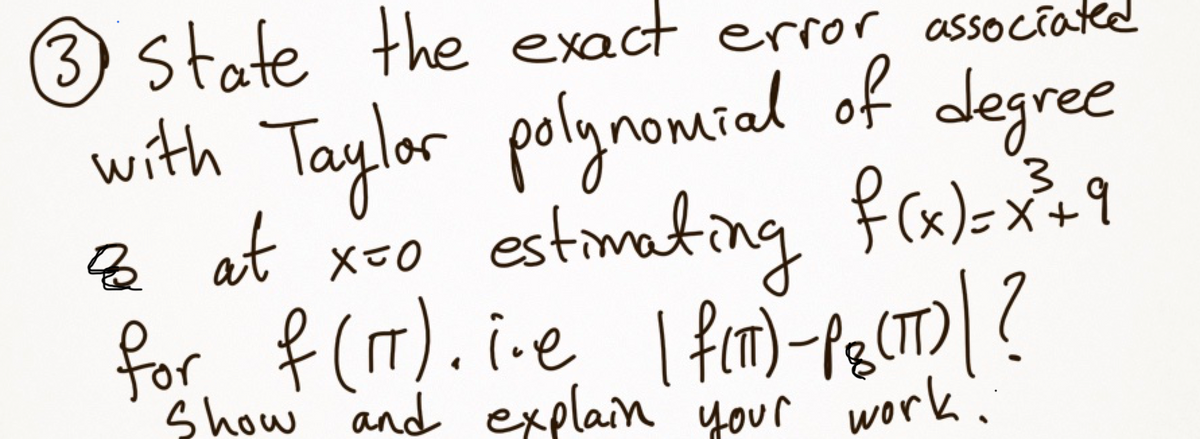 ③ State the exact error associated
with Taylor polynomial of degree
at x=0 estimating f(x)=x³+9
for f(π). i.e |f(π)-p(π)|?
show and explain your work.